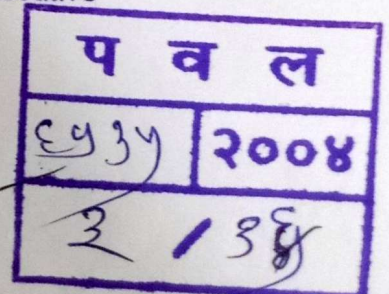 प व ल
६५३५ २००४
३ /